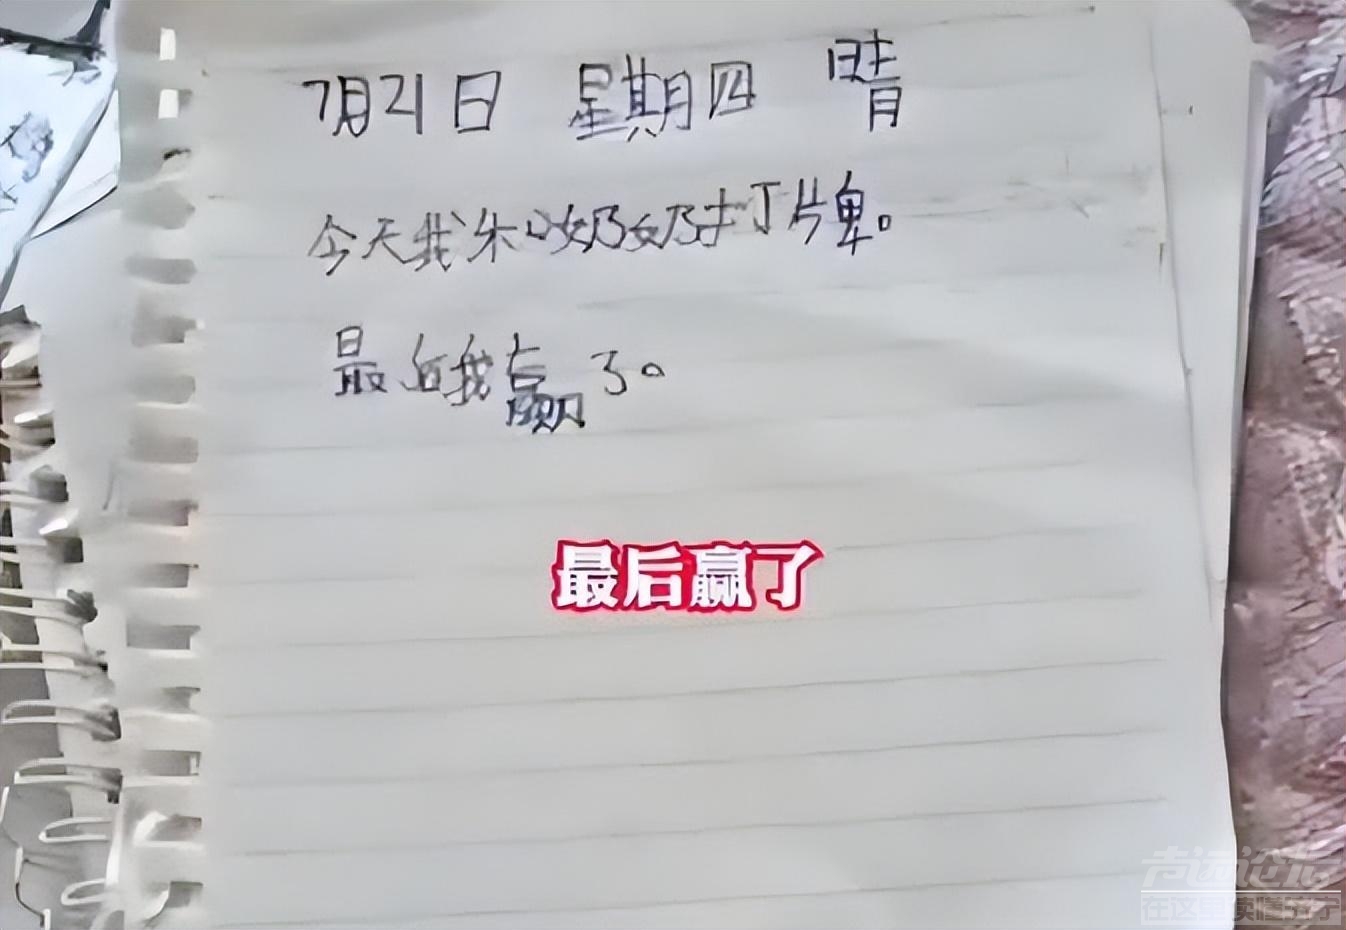 7月21日 星期四 晴
今天我和奶奶打牌。
最后我赢了。
最后赢了
声远论坛
在这里读懂济宁